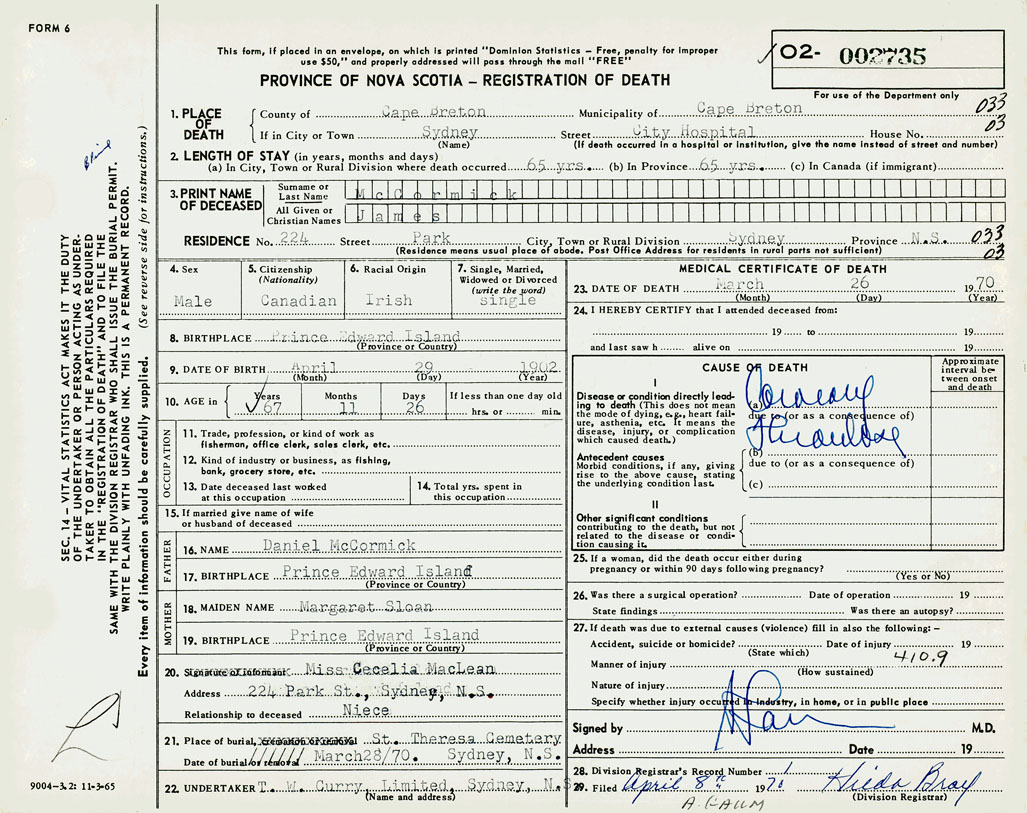 FORM 6
This form, if placed in an envelope, on which is printed "Dominion Statistics – Free, penalty for improper
use $50," and properly addressed will pass through the mail "FREE"
PROVINCE OF NOVA SCOTIA – REGISTRATION OF DEATH
02- 002735
For use of the Department only
1. PLACE OF DEATH
County of Cape Breton Municipality of Cape Breton 033
If in City or Town Sydney Street City Hospital House No. 03
(Name) (If death occurred in a hospital or institution, give the name instead of street and number)
2. LENGTH OF STAY (in years, months and days)
(a) In City, Town or Rural Division where death occurred 65 yrs. (b) In Province 65 yrs. (c) In Canada (if immigrant)
3. PRINT NAME OF DECEASED
Surname or Last Name McCormick
All Given or Christian Names James
RESIDENCE No. 224 Street Park City, Town or Rural Division Sydney Province N.S. 033
(Residence means usual place of abode. Post Office Address for residents in rural parts not sufficient) 03
4. Sex
Male
5. Citizenship
(Nationality)
Canadian
6. Racial Origin
Irish
7. Single, Married,
Widowed or Divorced
(write the word)
single
8. BIRTHPLACE Prince Edward Island
(Province or Country)
9. DATE OF BIRTH April 29 1902
(Month) (Day) (Year)
10. AGE in
Years Months Days If less than one day old
67 11 26 hrs. or min.
OCCUPATION
11. Trade, profession, or kind of work as
fisherman, office clerk, sales clerk, etc.
12. Kind of industry or business, as fishing,
bank, grocery store, etc.
13. Date deceased last worked
at this occupation
14. Total yrs. spent in
this occupation
15. If married give name of wife
or husband of deceased
FATHER
16. NAME Daniel McCormick
17. BIRTHPLACE Prince Edward Island
(Province or Country)
MOTHER
18. MAIDEN NAME Margaret Sloan
19. BIRTHPLACE Prince Edward Island
(Province or Country)
20. Signature of informant Miss Cecelia MacLean
Address 224 Park St., Sydney, N.S.
Relationship to deceased Niece
21. Place of burial, cremation or removal St. Theresa Cemetery
Date of burial or removal March28/70. Sydney, N.S.
22. UNDERTAKER T. W. Curry, Limited, Sydney, N.S
(Name and address)
MEDICAL CERTIFICATE OF DEATH
23. DATE OF DEATH March 26 1970
(Month) (Day) (Year)
24. I HEREBY CERTIFY that I attended deceased from:
19 to 19
and last saw h alive on 19
CAUSE OF DEATH
Approximate
interval be-
tween onset
and death
I
Disease or condition directly lead-
ing to death (This does not mean
the mode of dying, e.g., heart fail-
ure, asthenia, etc. It means the
disease, injury, or complication
which caused death.)
(a) Coronary
due to (or as a consequence of)
Thrombosis
Antecedent causes
Morbid conditions, if any, giving
rise to the above cause, stating
the underlying condition last.
(b)
due to (or as a consequence of)
(c)
II
Other significant conditions
contributing to the death, but not
related to the disease or condi-
tion causing it.
25. If a woman, did the death occur either during
pregnancy or within 90 days following pregnancy?
(Yes or No)
26. Was there a surgical operation? Date of operation 19
State findings Was there an autopsy?
27. If death was due to external causes (violence) fill in also the following: –
Accident, suicide or homicide? Date of injury 19
(State which) 410.9
Manner of injury
(How sustained)
Nature of injury
Specify whether injury occurred in industry, in home, or in public place
Signed by M.D.
Address Date 19
28. Division Registrar's Record Number 1
29. Filed April 8th 1970 Hilda Bray
(Division Registrar)
A. GAUM
SEC. 14 – VITAL STATISTICS ACT MAKES IT THE DUTY
OF THE UNDERTAKER OR PERSON ACTING AS UNDER-
TAKER TO OBTAIN ALL THE PARTICULARS REQUIRED
IN THE "REGISTRATION OF DEATH" AND TO FILE THE
SAME WITH THE DIVISION REGISTRAR WHO SHALL ISSUE THE BURIAL PERMIT.
WRITE PLAINLY WITH UNFADING INK. THIS IS A PERMANENT RECORD.
Every item of information should be carefully supplied. (See reverse side for instructions.)
9004–3.2: 11-3-65